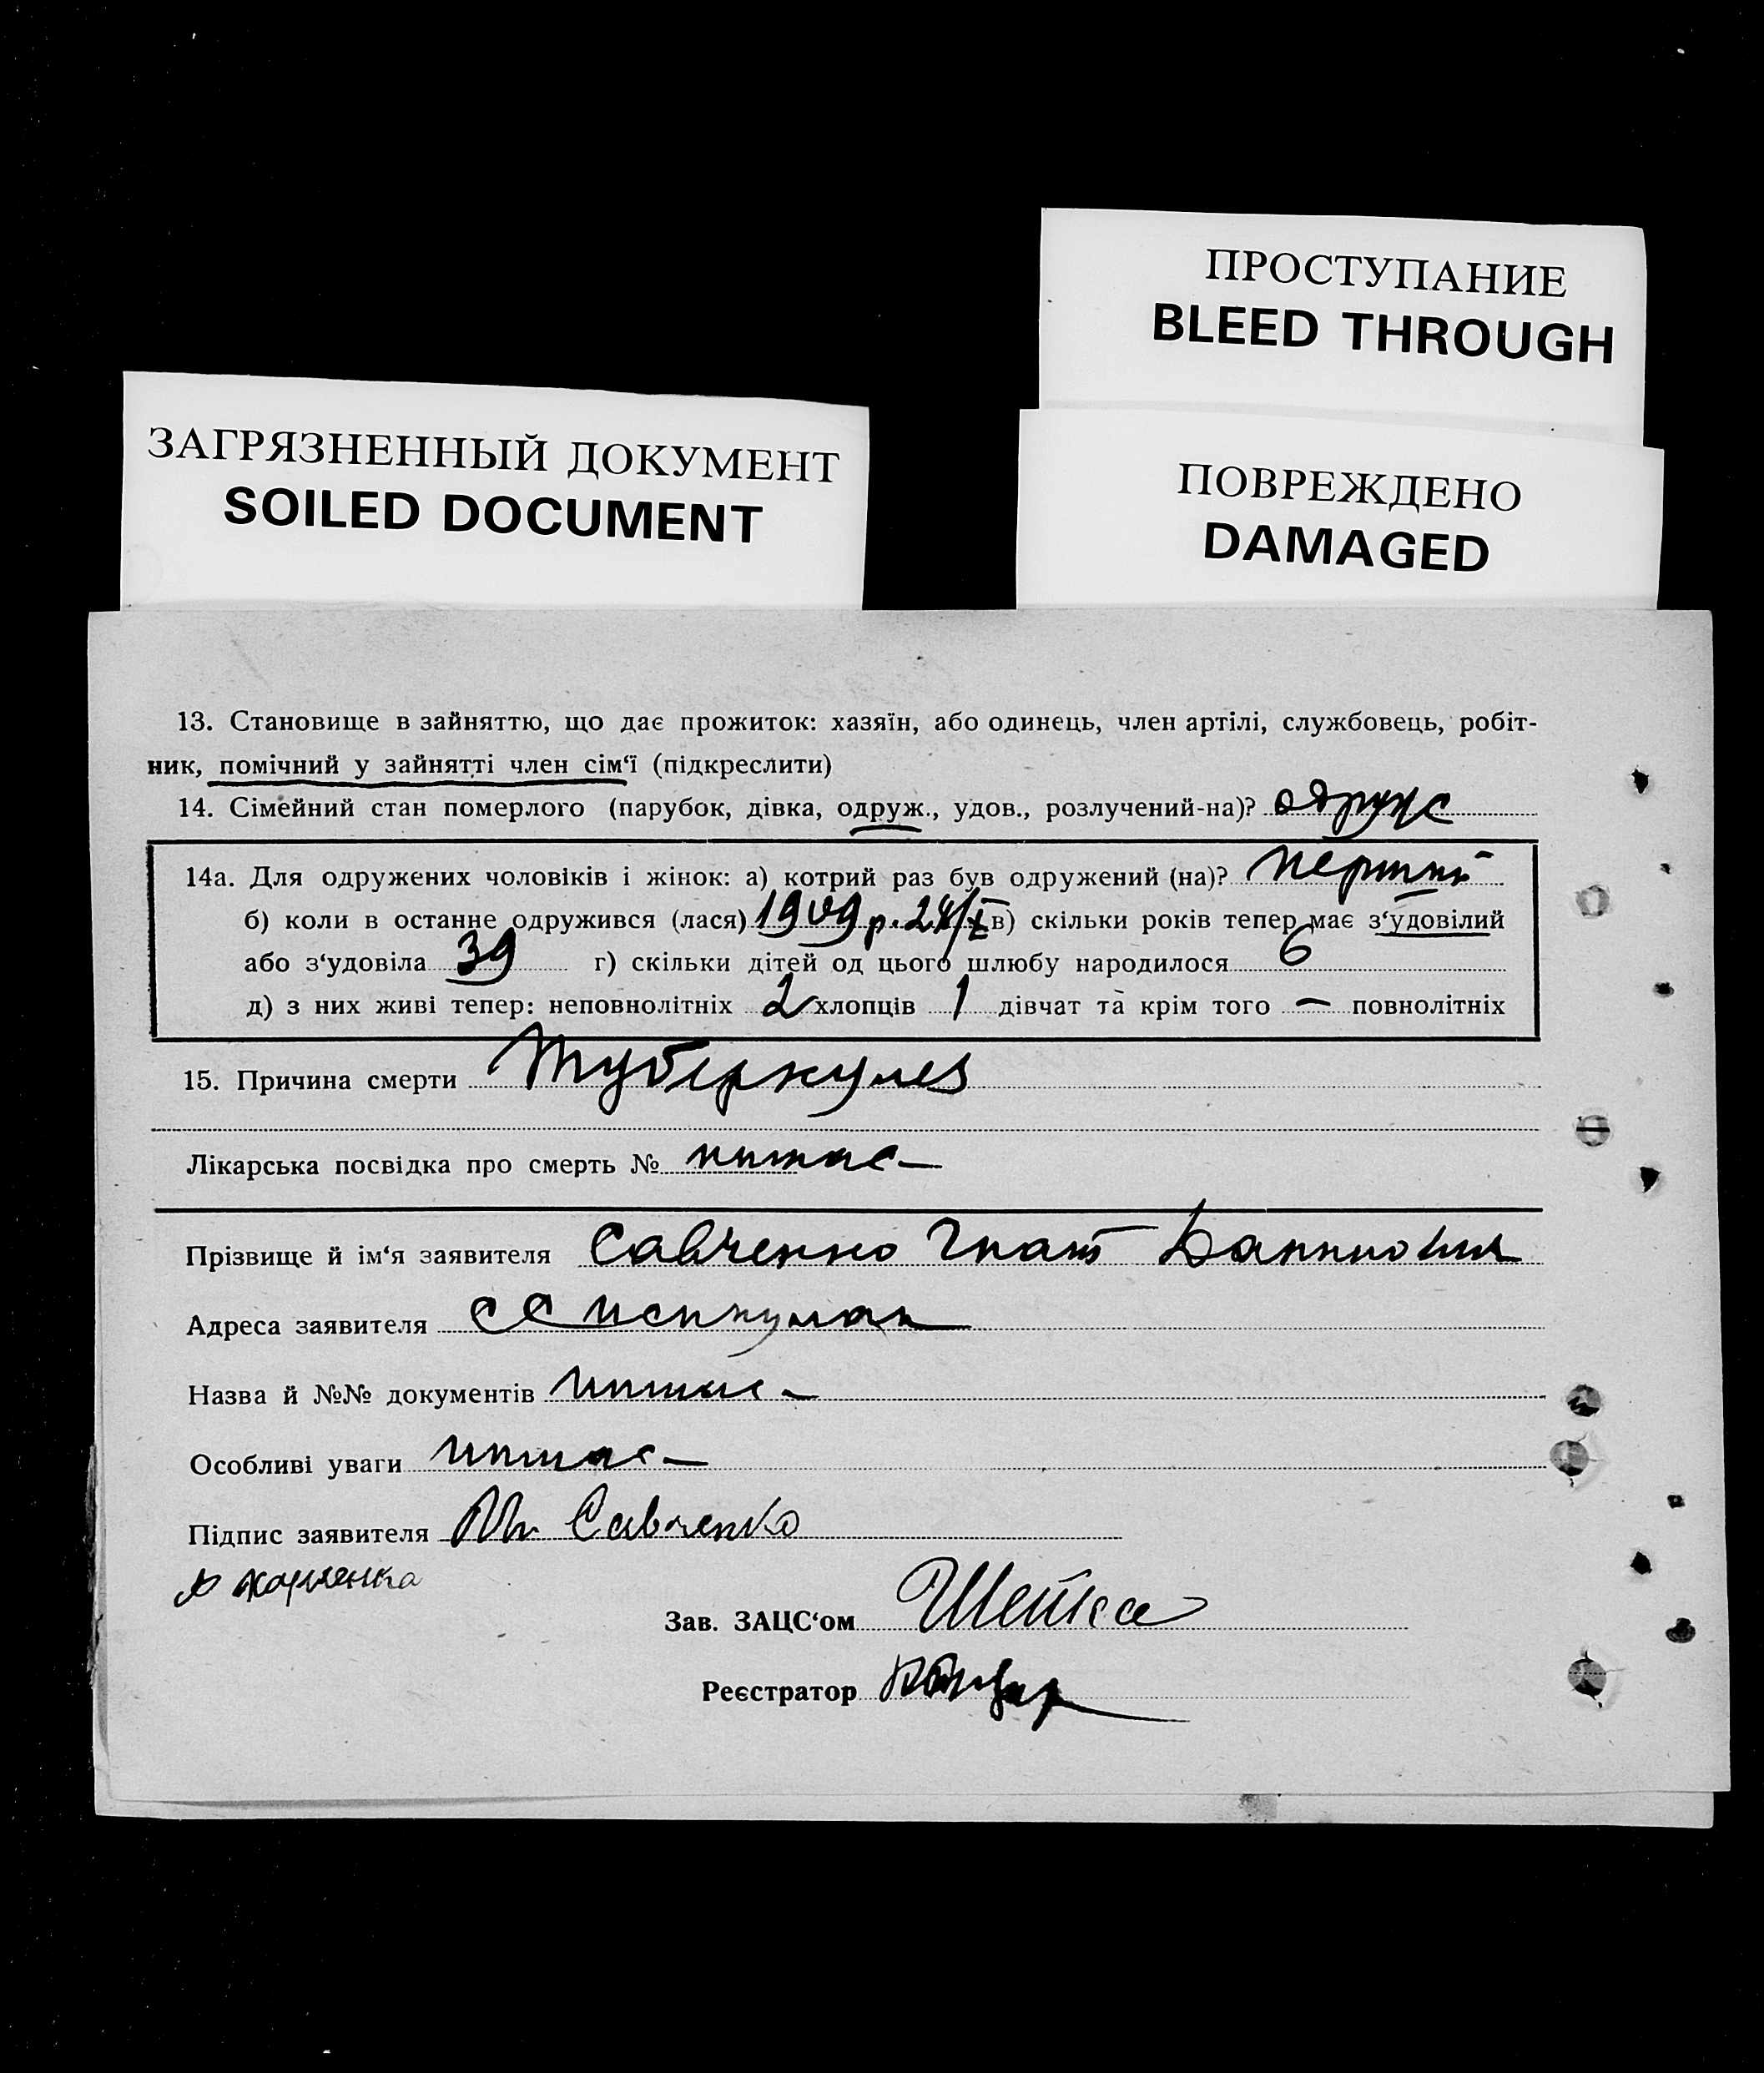 ПРОСТУПАНИЕ
BLEED THROUGH
ЗАГРЯЗНЕННЫЙ ДОКУМЕНТ
SOILED DOCUMENT
ПОВРЕЖДЕНО
DAMAGED
13. Становище в зайняттю, що дає прожиток: хазяїн, або одинець, член артілі, службовець, робіт-
ник, помічний у зайнятті член сім‘ї (підкреслити)
14. Сімейний стан померлого (парубок, дівка, одруж., удов., розлучений-на)? одруж
14а. Для одружених чоловіків і жінок: а) котрий раз був одружений (на)? перший
б) коли в останнє одружився (лася) 1909 р. в) скільки років тепер має з‘удовілий
або з‘удовіла 39 г) скільки дітей од цього шлюбу народилося 6
д) з них живі тепер: неповнолітніх 2 хлопців 1 дівчат та крім того — повнолітніх
15. Причина смерти Туберкульоз
Лікарська посвідка про смерть № немає —
Прізвище й ім‘я заявителя Савченко Гнат
Адреса заявителя
Назва й №№ документів немає —
Особливі уваги немає —
Підпис заявителя Савченко
Зав. ЗАЦС‘ом
Реєстратор